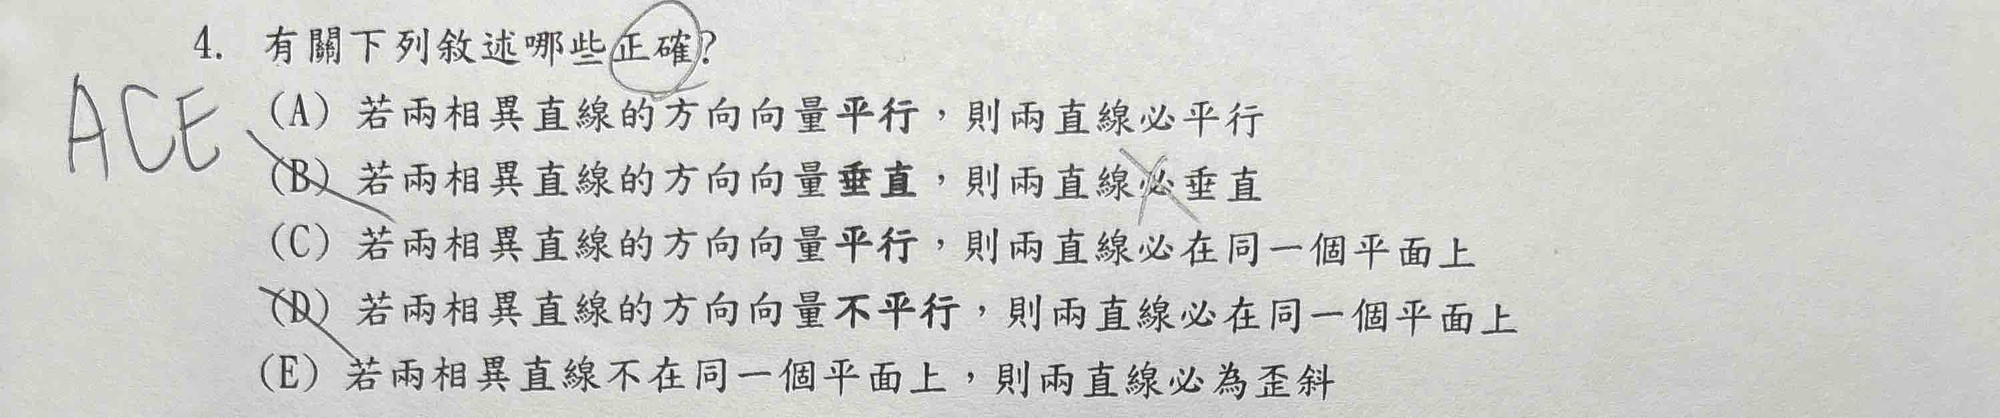 4. 有關下列敘述哪些正確?
ACE
(A) 若兩相異直線的方向向量平行,則兩直線必平行
(B) 若兩相異直線的方向向量垂直,則兩直線必垂直
(C) 若兩相異直線的方向向量平行,則兩直線必在同一個平面上
(D) 若兩相異直線的方向向量不平行,則兩直線必在同一個平面上
(E) 若兩相異直線不在同一個平面上,則兩直線必為歪斜